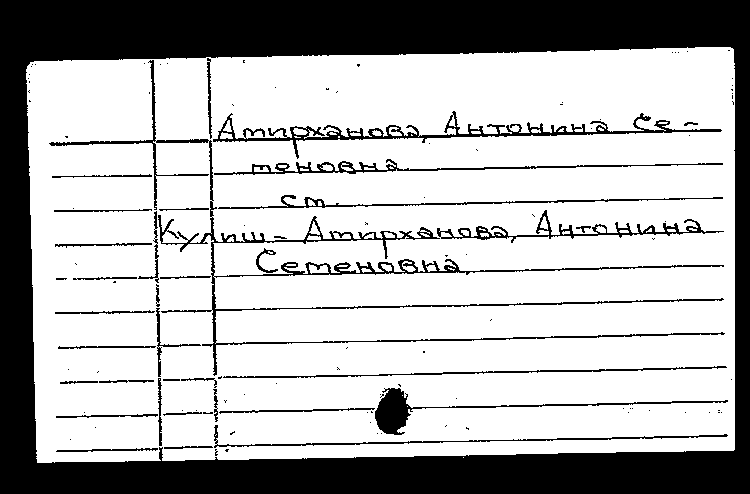 Амирханова, Антонина Се-
меновна
см.
Кулиш-Амирханова, Антонина
Семеновна.